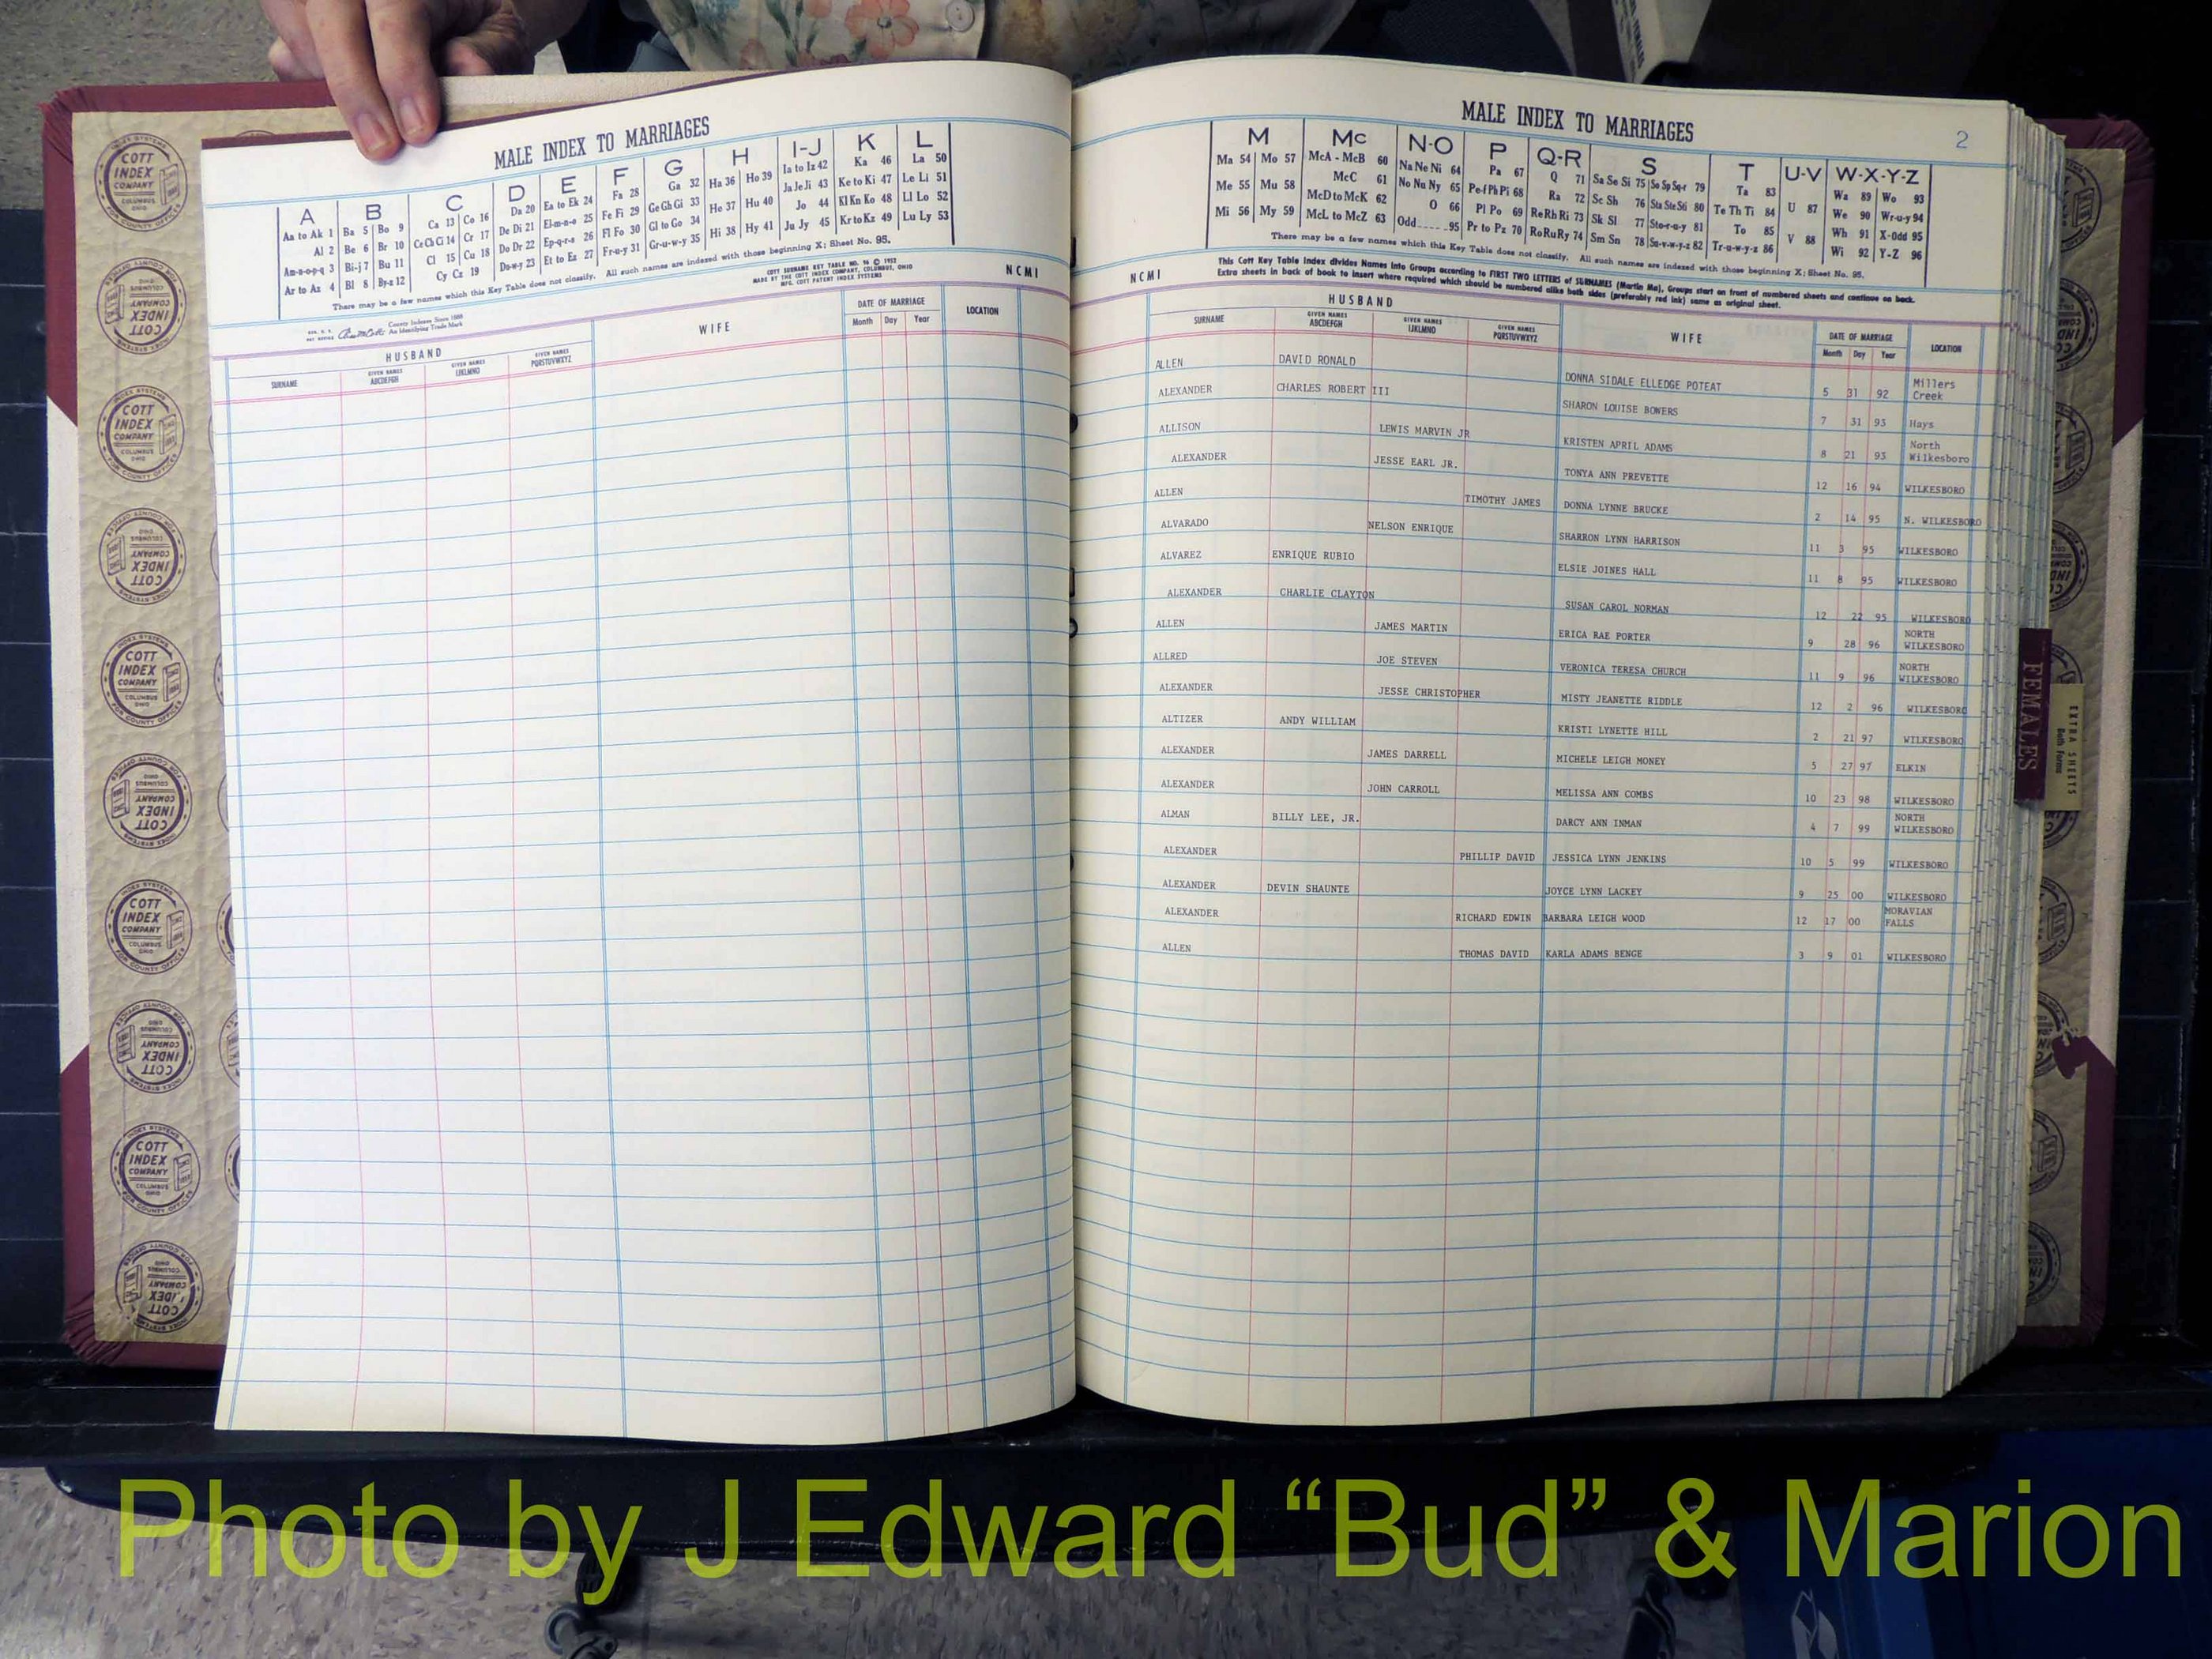 MALE INDEX TO MARRIAGES
A B C D E F G H I-J K L
Aa to Ak 1 Ba 5 Bo 9 Ca 13 Co 16 Da 20 Ea to Ek 24 Fa 28 Ga 32 Ha 36 Ho 39 Ia to Iz 42 Ka 46 La 50
Al 2 Be 6 Br 10 Ce Ch Ci 14 Cr 17 De Di 21 El-m-n-o 25 Fe Fi 29 Ge Gh Gi 33 He 37 Hu 40 Ja Je Ji 43 Ke to Ki 47 Le Li 51
Am-n-o-p-q 3 Bi-j 7 Bu 11 Cl 15 Cu 18 Do Dr 22 Ep-q-r-s 26 Fl Fo 30 Gl to Go 34 Hi 38 Hy 41 Jo 44 Kl Kn Ko 48 Ll Lo 52
Ar to Az 4 Bl 8 By-z 12 Cy Cz 19 Du-w-y 23 Et to Ez 27 Fr-u-y 31 Gr-u-w-y 35 Ju Jy 45 Kr to Kz 49 Lu Ly 53
There may be a few names which this Key Table does not classify. All such names are indexed with those beginning X; Sheet No. 95.
COTT SURNAME KEY TABLE NO. 96 © 1952
MADE BY THE COTT INDEX COMPANY, COLUMBUS, OHIO
MFG. COTT PATENT INDEX SYSTEMS
NCMI
County Indexes Since 1888
An Identifying Trade Mark
HUSBAND WIFE DATE OF MARRIAGE LOCATION
SURNAME GIVEN NAMES ABCDEFGH GIVEN NAMES IJKLMNO GIVEN NAMES PQRSTUVWXYZ Month Day Year
MALE INDEX TO MARRIAGES
2
M Mc N-O P Q-R S T U-V W-X-Y-Z
Ma 54 Mo 57 McA - McB 60 Na Ne Ni 64 Pa 67 Q 71 Sa Se Si 75 So Sp Sq-r 79 Ta 83 U 87 Wa 89 Wo 93
Me 55 Mu 58 McC 61 No Nu Ny 65 Pe-f Ph Pi 68 Ra 72 Sc Sh 76 Sta Ste Sti 80 Te Th Ti 84 V 88 We 90 Wr-u-y 94
Mi 56 My 59 McD to McK 62 O 66 Pl Po 69 Re Rh Ri 73 Sk Sl 77 Sto-r-u-y 81 To 85 Wh 91 X-Odd 95
McL to McZ 63 Odd 95 Pr to Pz 70 Ro Ru Ry 74 Sm Sn 78 Su-v-w-y-z 82 Tr-u-w-y-z 86 Wi 92 Y-Z 96
There may be a few names which this Key Table does not classify. All such names are indexed with those beginning X; Sheet No. 95.
This Cott Key Table Index divides Names into Groups according to FIRST TWO LETTERS of SURNAMES (Martin Ma), Groups start on front of numbered sheets and continue on back.
Extra sheets in back of book to insert where required which should be numbered alike both sides (preferably red ink) same as original sheet.
NCMI
HUSBAND WIFE DATE OF MARRIAGE LOCATION
SURNAME GIVEN NAMES ABCDEFGH GIVEN NAMES IJKLMNO GIVEN NAMES PQRSTUVWXYZ Month Day Year
ALLEN DAVID RONALD DONNA SIDALE ELLEDGE POTEAT 5 31 92 Millers Creek
ALEXANDER CHARLES ROBERT III SHARON LOUISE BOWERS 7 31 93 Hays
ALLISON LEWIS MARVIN JR KRISTEN APRIL ADAMS 8 21 93 North Wilkesboro
ALEXANDER JESSE EARL JR. TONYA ANN PREVETTE 12 16 94 WILKESBORO
ALLEN TIMOTHY JAMES DONNA LYNNE BRUCKE 2 14 95 N. WILKESBORO
ALVARADO NELSON ENRIQUE SHARRON LYNN HARRISON 11 3 95 WILKESBORO
ALVAREZ ENRIQUE RUBIO ELSIE JOINES HALL 11 8 95 WILKESBORO
ALEXANDER CHARLIE CLAYTON SUSAN CAROL NORMAN 12 22 95 WILKESBORO
ALLEN JAMES MARTIN ERICA RAE PORTER 9 28 96 NORTH WILKESBORO
ALLRED JOE STEVEN VERONICA TERESA CHURCH 11 9 96 NORTH WILKESBORO
ALEXANDER JESSE CHRISTOPHER MISTY JEANETTE RIDDLE 12 2 96 WILKESBORO
ALTIZER ANDY WILLIAM KRISTI LYNETTE HILL 2 21 97 WILKESBORO
ALEXANDER JAMES DARRELL MICHELE LEIGH MONEY 5 27 97 ELKIN
ALEXANDER JOHN CARROLL MELISSA ANN COMBS 10 23 98 WILKESBORO
ALMAN BILLY LEE, JR. DARCY ANN INMAN 4 7 99 NORTH WILKESBORO
ALEXANDER PHILLIP DAVID JESSICA LYNN JENKINS 10 5 99 WILKESBORO
ALEXANDER DEVIN SHAUNTE JOYCE LYNN LACKEY 9 25 00 WILKESBORO
ALEXANDER RICHARD EDWIN BARBARA LEIGH WOOD 12 17 00 MORAVIAN FALLS
ALLEN THOMAS DAVID KARLA ADAMS BENGE 3 9 01 WILKESBORO
FEMALES
EXTRA SHEETS
Both Forms
COTT INDEX COMPANY COLUMBUS OHIO
INDEX SYSTEMS FOR COUNTY OFFICES
Photo by J Edward “Bud” & Marion